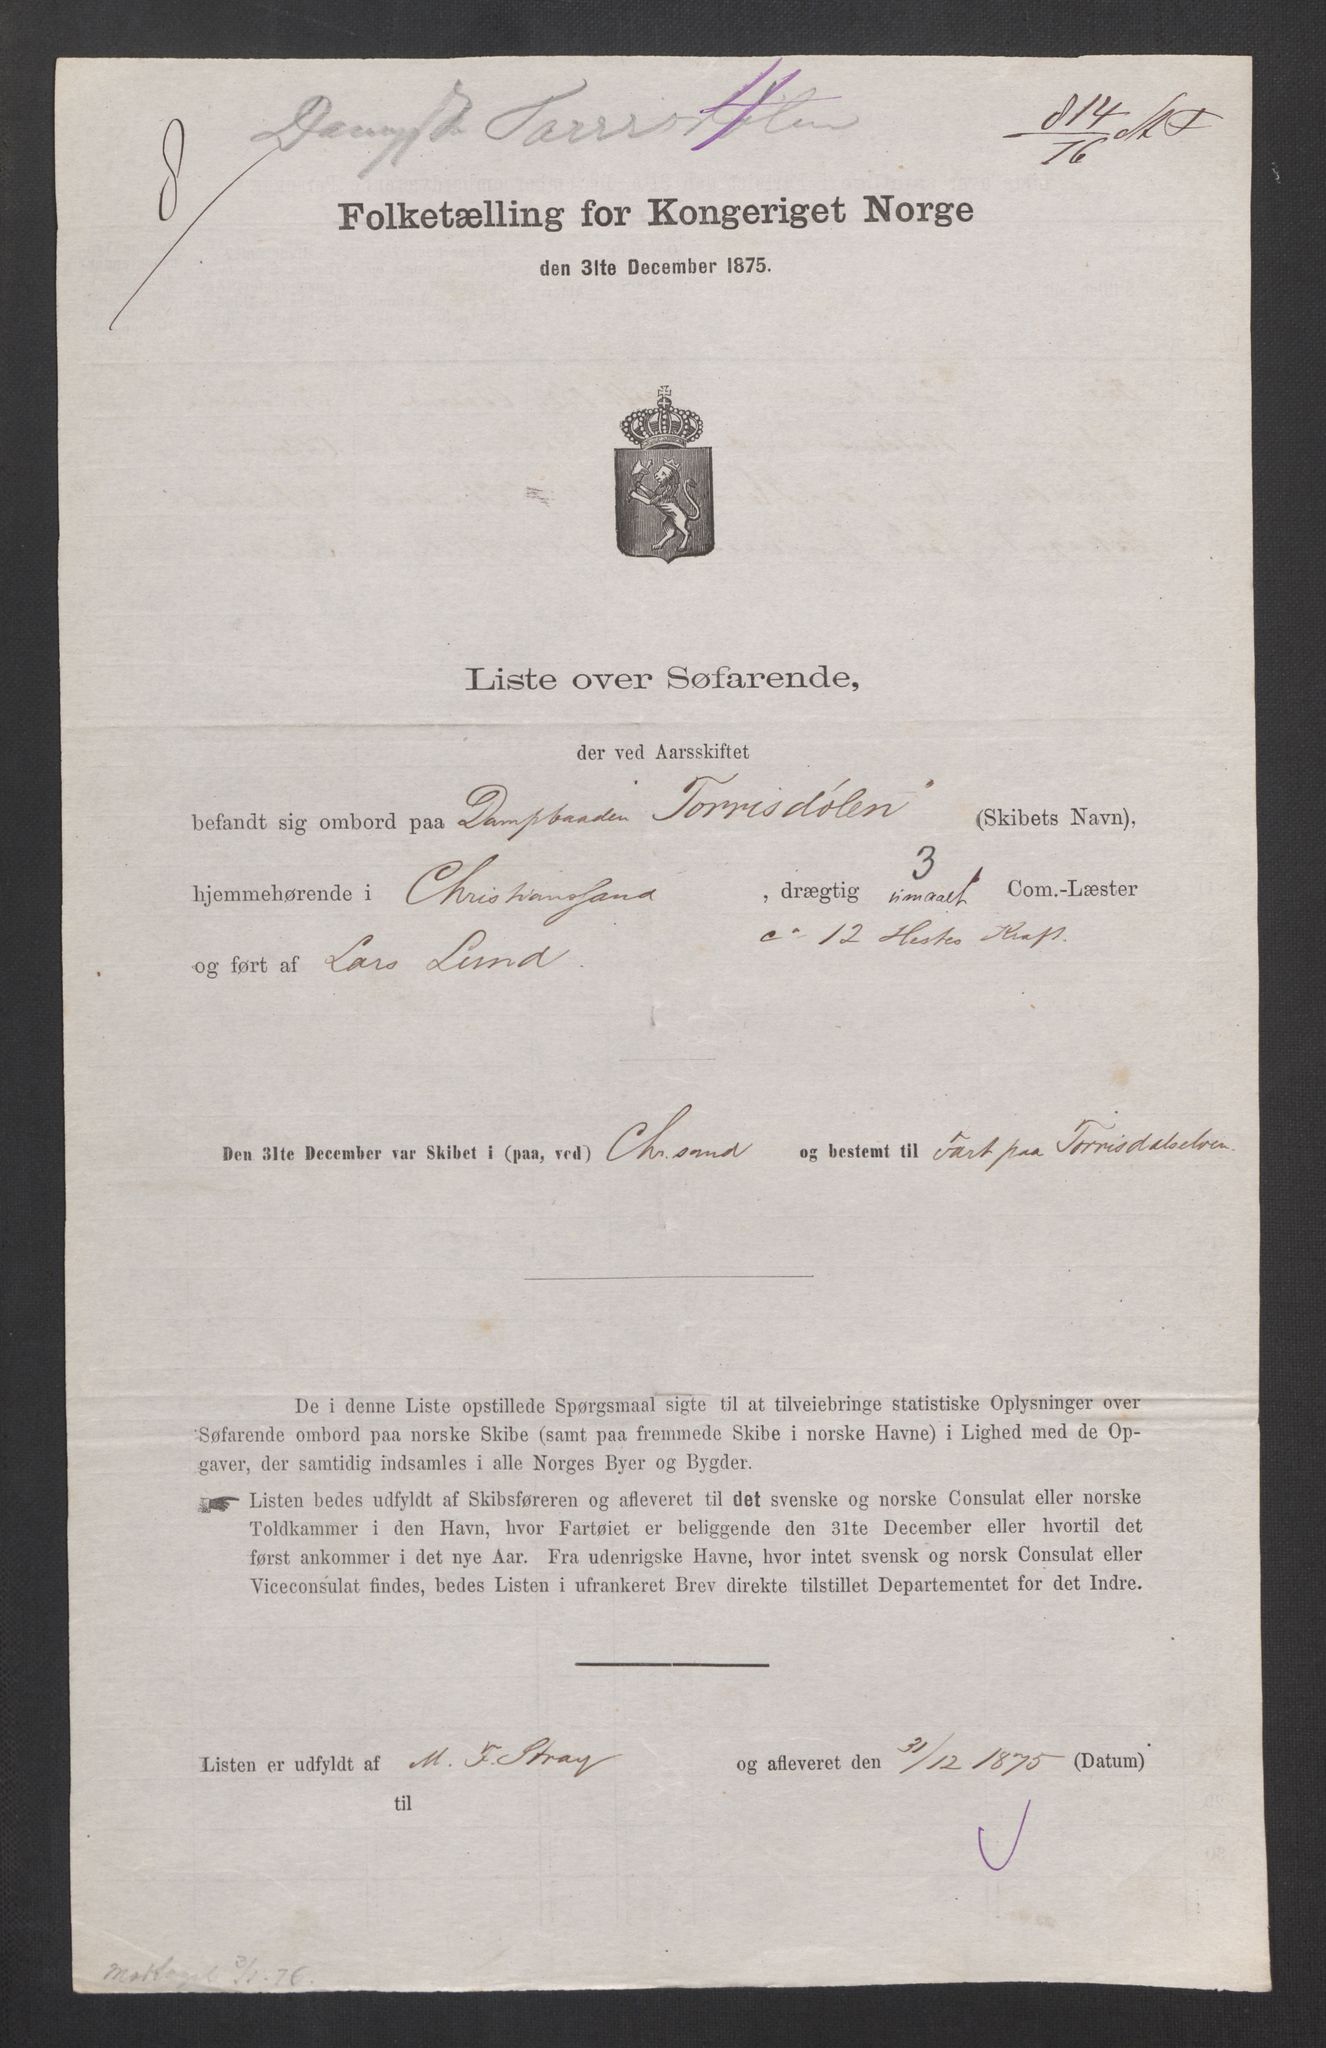 8
4
814
76
Folketælling for Kongeriget Norge
den 31te December 1875.
Liste over Søfarende,
der ved Aarsskiftet
befandt sig ombord paa Dampbaaden "Torrisdølen" (Skibets Navn),
hjemmehørende i Christianssand, drægtig 3 umaalt Com.-Læster
ca 12 Hestes Kraft.
og ført af Lars Lund.
Den 31te December var Skibet i (paa, ved) Chr.sand og bestemt til Fart paa Torrisdalselven.
De i denne Liste opstillede Spørgsmaal sigte til at tilveiebringe statistiske Oplysninger over
Søfarende ombord paa norske Skibe (samt paa fremmede Skibe i norske Havne) i Lighed med de Op-
gaver, der samtidig indsamles i alle Norges Byer og Bygder.
Listen bedes udfyldt af Skibsføreren og afleveret til det svenske og norske Consulat eller norske
Toldkammer i den Havn, hvor Fartøiet er beliggende den 31te December eller hvortil det
først ankommer i det nye Aar. Fra udenrigske Havne, hvor intet svensk og norsk Consulat eller
Viceconsulat findes, bedes Listen i ufrankeret Brev direkte tilstillet Departementet for det Indre.
Listen er udfyldt af M. F. Stray og afleveret den 31/12 1875 (Datum)
til